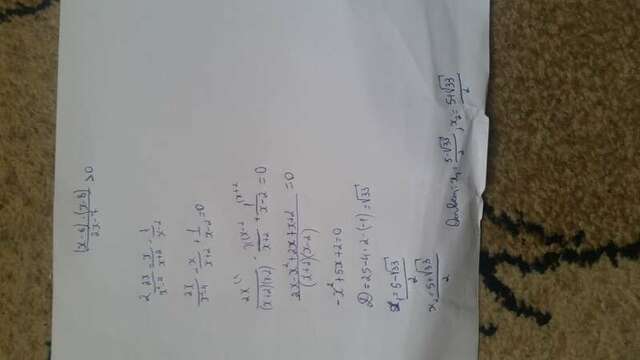 (x-6)·(x-8)/2x-7 >0
2 2x/x²-4 = x/x+2 - 1/x-2
2x/x²-4 - x/x+2 + 1/x-2 =0
2x/(x+2)(x-2) - x/x+2 + 1/x-2 =0
2x-x²+2x+x+2/(x+2)(x-2) =0
-x²+5x+2=0
D=25-4·2·(-1)=√33
x₁=5-√33/2
x₂=5+√33/2
Ответ: x₁= 5-√33/2 ; x₂= 5+√33/2